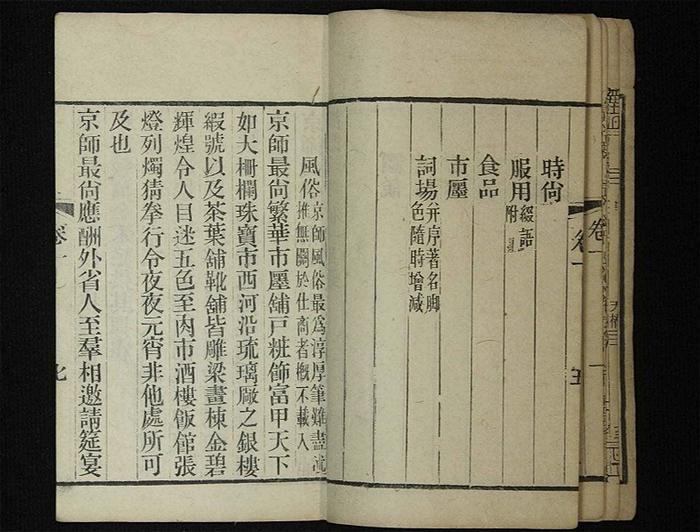 卷一
卷一
五
時尚
服用
附
食品
市廛
詞場 并序著名脚
色隨時增減
風俗 京師風俗最爲淳厚筆難盡述
推無關於仕商者槪不載入
京師最尚繁華市廛舖戸粧飾富甲天下
如大柵欄珠寶市西河沿琉璃厰之銀樓
緞號以及茶葉舖靴舖皆雕梁畫棟金碧
輝煌令人目迷五色至肉市酒樓飯館張
燈列燭猜拳行令夜夜元宵非他處所可
及也
京師最尚應酬外省人至羣相邀請筵宴
卷一